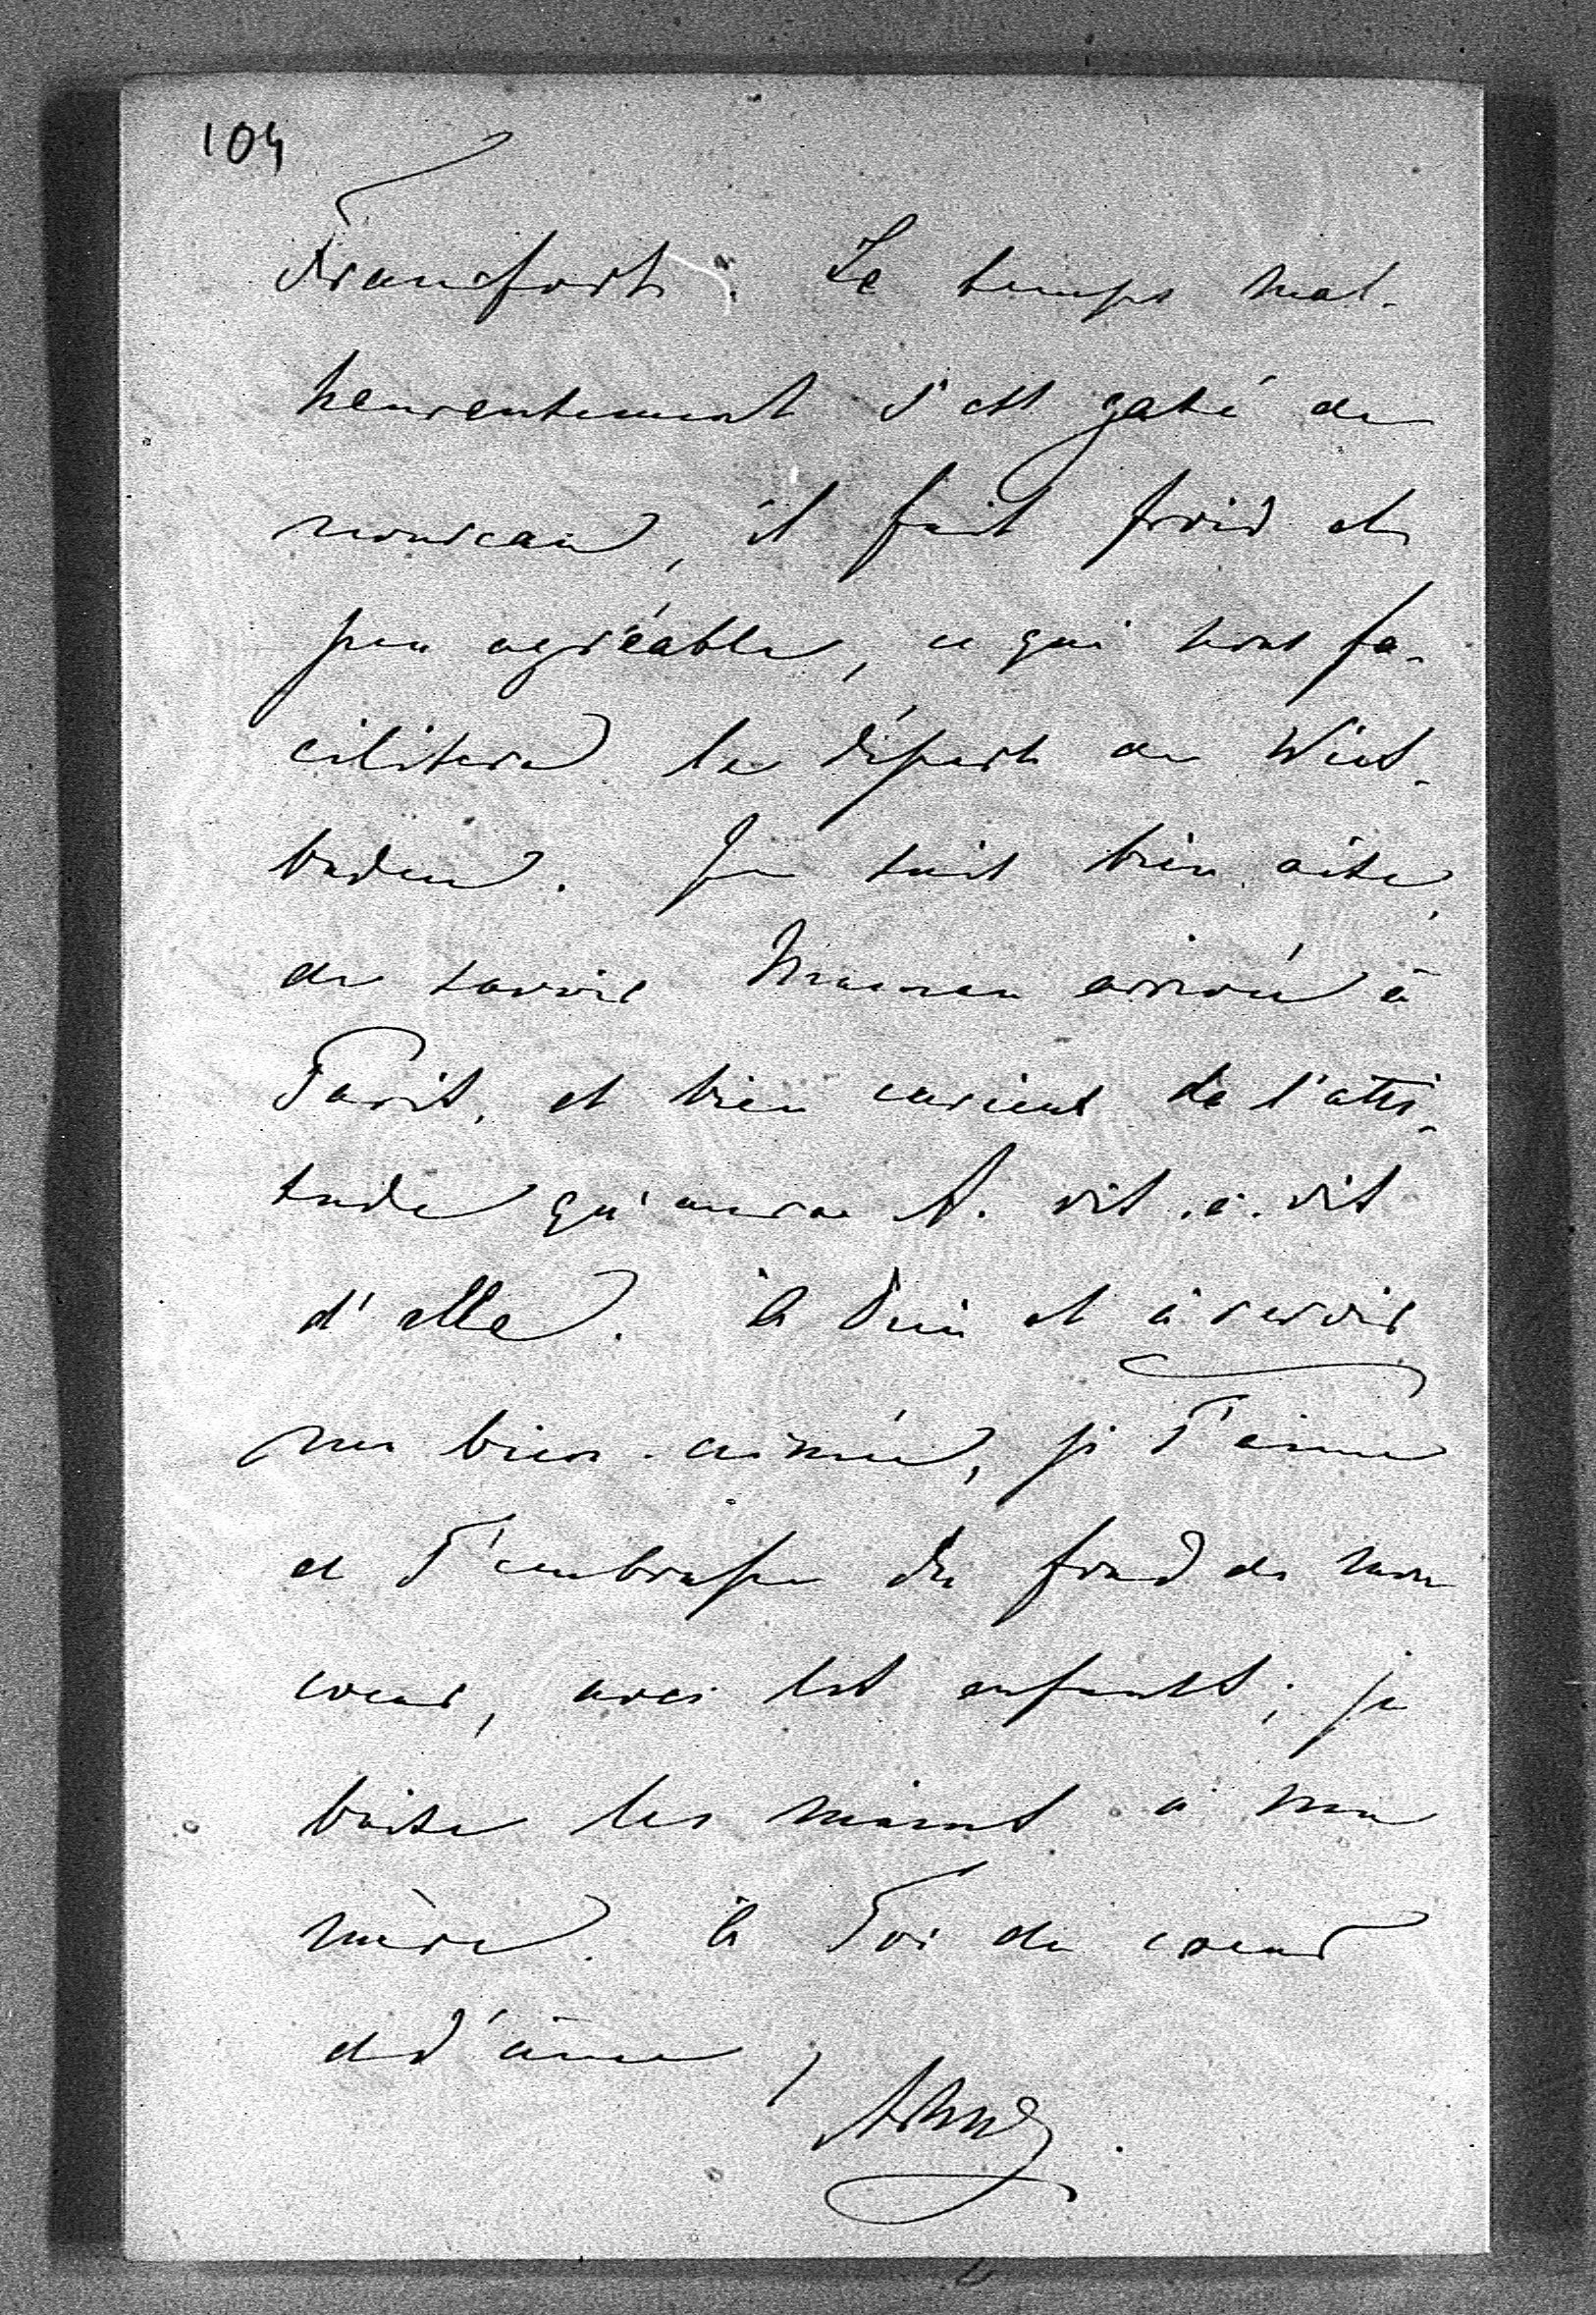 104
Francfort. Le temps mal-
heureusement s'est gaté de
nouveau, il fait froid et
peu agréable, ce qui nous fa-
cilitera le départ de Wies-
baden. Je suis bien aise
de savoir Maman arrivée à
Paris, et bien curieux de l'atti-
tude qu'aura A. vis-à-vis
d'elle. à Dieu et à revoir
ma bien-aimée, je T'aime
et T'embrasse du fond de mon
coeur, avec les enfants; je
baise les mains à ma
mère. à Toi de coeur
et d'âme,